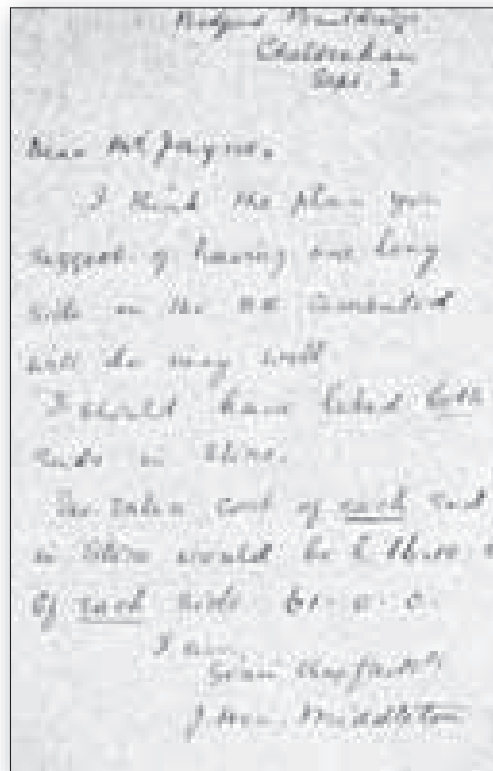 Cheltenham
Sept. 2
Dear Mr Jayne,
I think the plan you
suggest of having one long
side on the NE cemented
will do very well
I should have liked both
ends in stone.
The extra cost of each end
in stone would be £
Of each side 61-0-0.
I am
J. Hen. Middleton